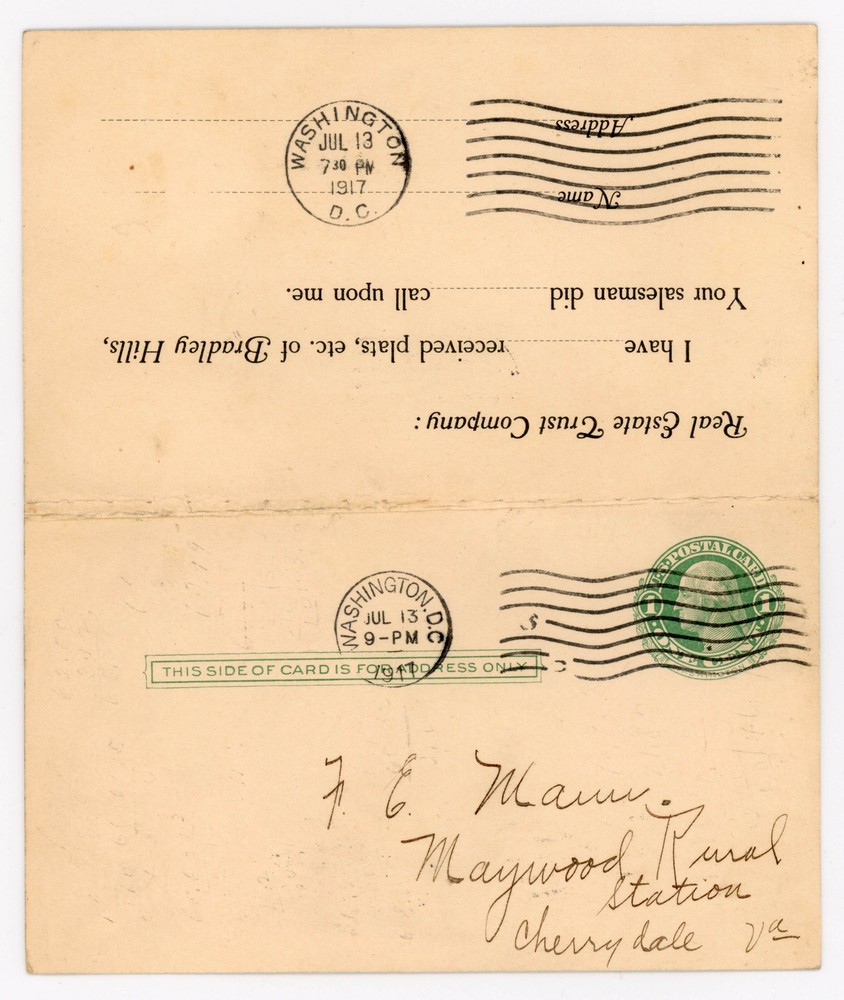 WASHINGTON
JUL 13
7 30 PM
1917
D.C.
Real Estate Trust Company:
I have ........ received plats, etc. of Bradley Hills,
Your salesman did ........ call upon me.
Name
Address
U.S. POSTAL CARD
1 1
ONE CENT
WASHINGTON, D.C.
JUL 13
9-PM
1917
THIS SIDE OF CARD IS FOR ADDRESS ONLY
F. E. Mann.
Maywood Rural
Station
Cherrydale Va